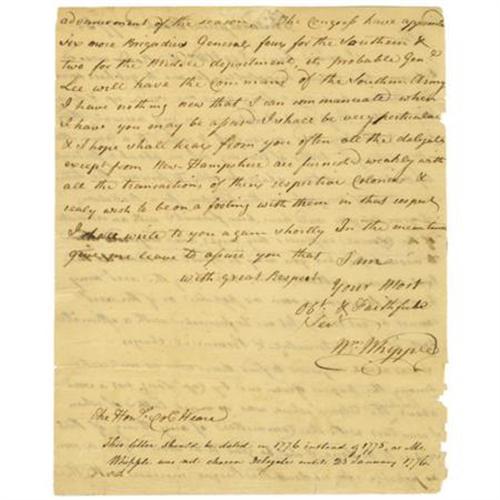 advancement of the season. The Congress have appointed
Six more Brigadier Generals, four for the Southern &
two for the Middle department, its probable Genl
Lee will have the Command of the Southern Army
I have nothing new that I can communicate when
I have you may be assured I shall be very particular
& I hope shall hear from you often all the delegates
except from New-Hampshire are furnished weakly with
all the transactions of their respective Colonies &
realy wish to be on a footing with them in that respect
I shall write to you again shortly In the meantime
give me leave to assure you that I am
with great Respect
Your Most
Obt. & Faithfull
Sert
Wm. Whipple
The Honble. Col Weare
This letter should be dated in 1776 instead of 1775, as Mr.
Whipple was not chosen Delegate until 23 January 1776.